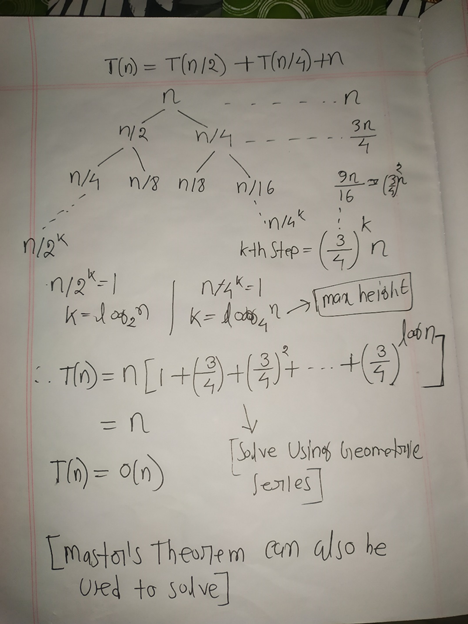 T(n) = T(n/2) + T(n/4) + n
n - - - - - - n
n/2 n/4 - - - - - - 3n/4
n/4 n/8 n/8 n/16 9n/16 = (3/4)²n
n/4^k
n/2^k k-th step = (3/4)^k n
n/2^k = 1 | n/4^k = 1
k = log₂n | k = log₄n → max height
∴ T(n) = n[1 + (3/4) + (3/4)² + ... + (3/4)^logn]
= n
[Solve Using Geometric
T(n) = O(n)
Series]
[Mastor's Theorem can also be
used to solve]